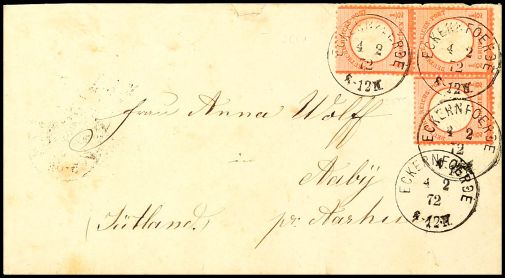 ECKERNFOERDE
4 2
72
8-12N.
ECKERNFOERDE
4 2
72
8-12N.
ECKERNFOERDE
4 2
72
ECKERNFOERDE
4 2
72
8-12N.
Frau Anna Wolff
in
Aaby
(Jütland.) pr. Aarhus